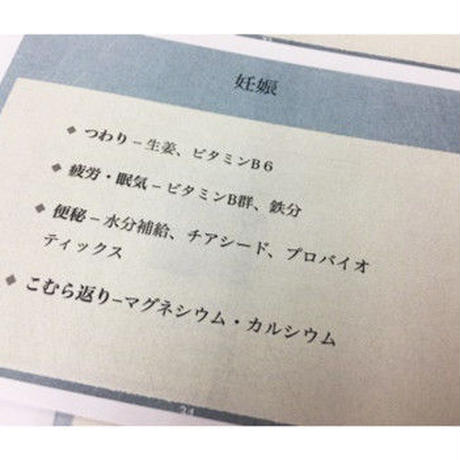 妊娠
◆ つわり – 生姜、ビタミンB６
◆ 疲労・眠気 – ビタミンB群、鉄分
◆ 便秘 – 水分補給、チアシード、プロバイオ
ティックス
◆ こむら返り–マグネシウム・カルシウム
34